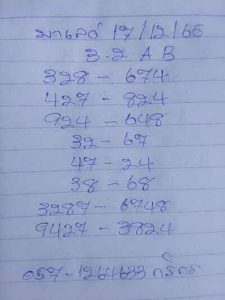 มาเลย์ 17/12/65
3-2 A B
328 - 674
427 - 824
924 - 648
32 - 67
47 - 24
38 - 68
3287 - 6748
9427 - 3824
057-1264633